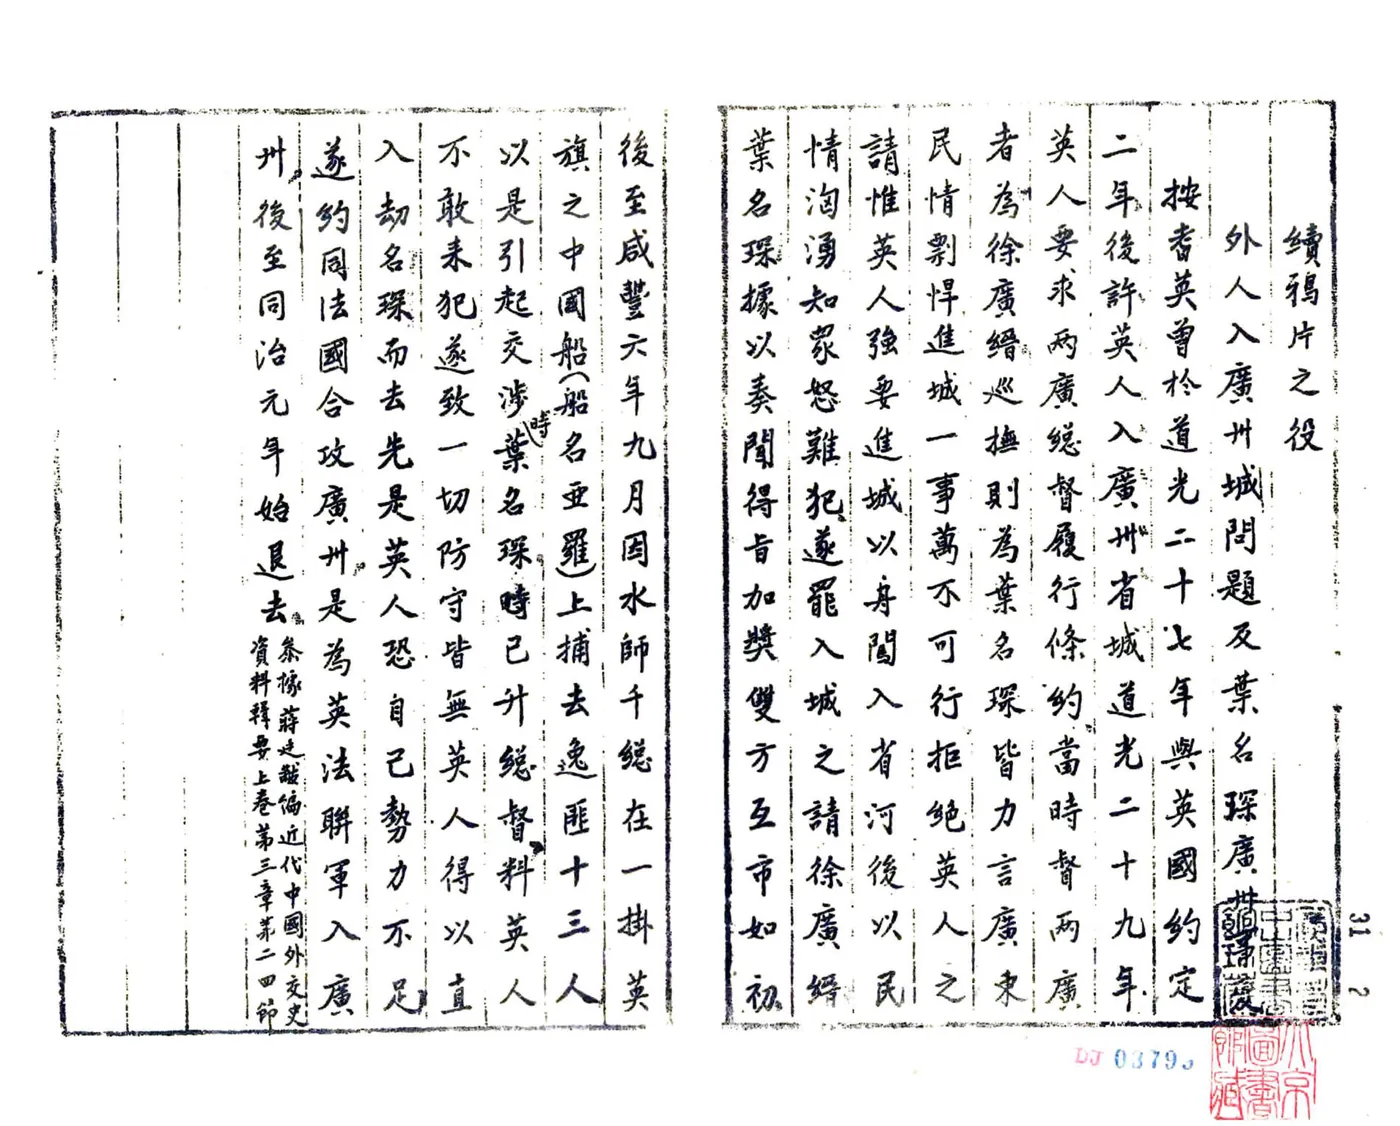 續鴉片之役
外人入廣州城問題及葉名琛廣州
按耆英曾於道光二十七年與英國約定
二年後許英人入廣州省城道光二十九年
英人要求兩廣總督履行條約當時督兩廣
者為徐廣縉巡撫則為葉名琛皆力言廣東
民情剽悍進城一事萬不可行拒絕英人之
請惟英人強要進城以舟闖入省河後以民
情洶湧知眾怒難犯遂罷入城之請徐廣縉
葉名琛據以奏聞得旨加獎雙方互市如初
後至咸豐六年九月因水師千總在一掛英
旗之中國船（船名亞羅）上捕去逸匪十三人
以是引起交涉時葉名琛時已升總督料英人
不敢来犯遂致一切防守皆無英人得以直
入劫名琛而去先是英人恐自己勢力不足
遂約同法國合攻廣州是為英法聯軍入廣
州後至同治元年始退去
叅據蔣廷黻編近代中國外交史
資料輯要上卷第三章第二四節
31 2
DJ 03795
北京圖書館藏